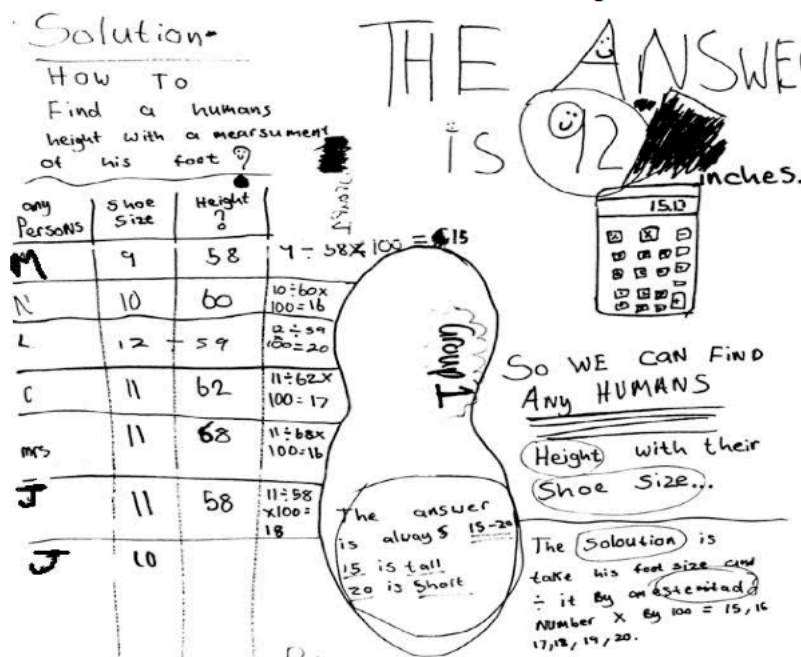 Solution-
How To
Find a humans
height with a mearsument
of his foot ?
THE ANSWE
is 92
inches.
15.0
any Persons
Shoe Size
Height ?
M 9 58 9 ÷ 58 x 100 = 15
N 10 60 10 ÷ 60 x 100 = 16
L 12 - 59 12 ÷ 59 100 = 20
C 11 62 11 ÷ 62 x 100 = 17
mrs 11 68 11 ÷ 68 x 100 = 16
J 11 58 11 ÷ 58 x 100 = 18
J 10
Group 1
The answer
is always 15-20
15 is tall
20 is Short
So WE CAN FIND
Any HUMANS
Height with their
Shoe Size...
The Soloution is
take his foot size and
÷ it By an estemitad
Number x By 100 = 15, 16
17, 18, 19, 20.